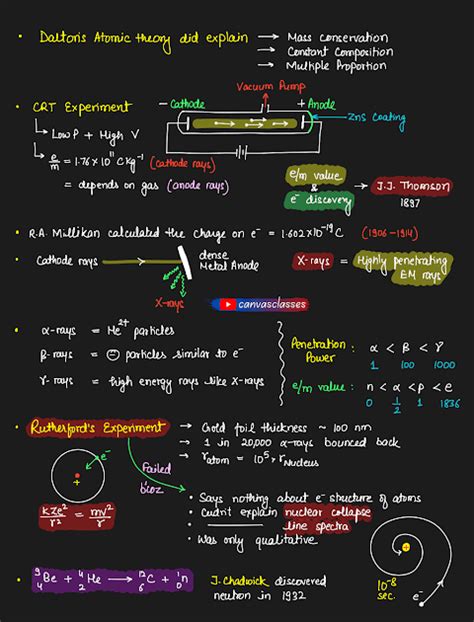 Dalton's Atomic theory did explain → Mass conservation
→ Constant Composition
→ Multiple Proportion
Vacuum Pump
CRT Experiment
- Cathode
+ Anode
ZnS Coating
Low P + High V
e/m = 1.76 x 10¹¹ C kg⁻¹ (cathode rays)
= depends on gas (anode rays)
e/m value & e⁻ discovery → J.J. Thomson 1897
R.A. Millikan calculated the charge on e⁻ = 1.602x10⁻¹⁹ C (1906-1914)
Cathode rays
dense Metal Anode
X-rays
X-rays = Highly penetrating EM rays
canvasclasses
α-rays = He²⁺ particles
β-rays = ⊖ particles similar to e⁻
γ-rays = high energy rays like X-rays
Penetration Power : α < β < γ
1 100 1000
e/m value : n < α < p < e
0 1/2 1 1836
Rutherford's Experiment → Gold foil thickness ~ 100 nm
→ 1 in 20,000 α-rays bounced back
→ r atom = 10⁵ x r Nucleus
e⁻
+
Failed b'coz
kze²/r² = mv²/r
Says nothing about e⁻ structure of atoms
Cudn't explain nuclear collapse
line spectra
Was only qualitative
+
10⁻⁸ sec.
e⁻
⁹₄Be + ⁴₂He → ¹²₆C + ¹₀n
J. Chadwick discovered neutron in 1932